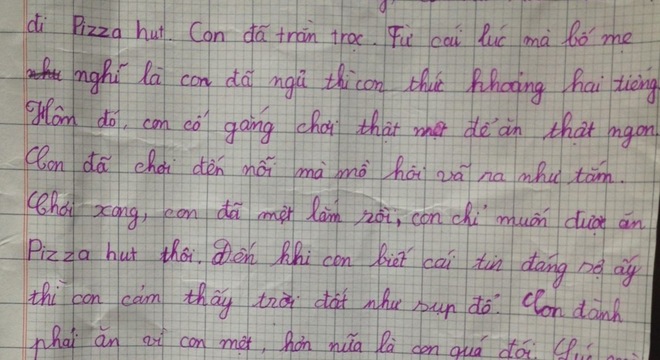 đi Pizza hut. Con đã trằn trọc. Từ cái lúc mà bố mẹ
nghĩ là con đã ngủ thì con thức khoảng hai tiếng.
Hôm đó, con cố gắng chơi thật mệt để ăn thật ngon.
Con đã chơi đến nỗi mà mồ hôi vã ra như tắm.
Chơi xong, con đã mệt lắm rồi, con chỉ muốn được ăn
Pizza hut thôi. Đến khi con biết cái tin đáng sợ ấy
thì con cảm thấy trời đất như sụp đổ. Con đành
phải ăn vì con mệt, hơn nữa là con quá đói.